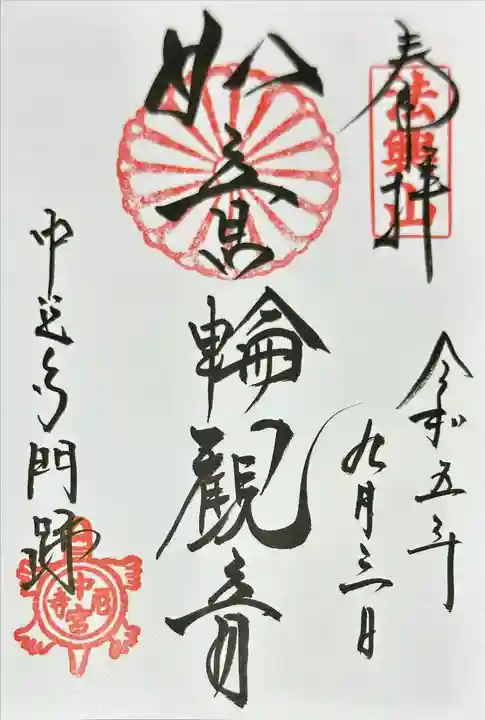 奉拝
法興山
令和五年
九月三日
如意輪觀音
中宮寺門跡
中宮尼寺